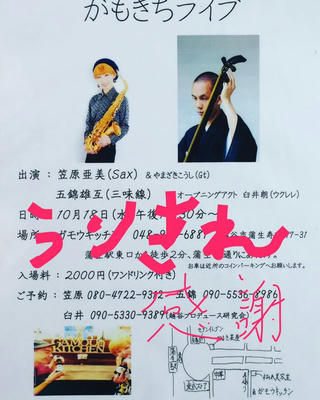 がもきちライブ
出演：笠原亜美(Sax) &やまざきこうし(Gt)
五錦雄互(三味線) オープニングアクト 臼井朗(ウクレレ)
10月18日(水)午後 30分～
うりきれ
場所 ガモウキッチン 048-9 -6887 谷市蒲生寿 7-31
蒲生駅東口 徒歩2分、蒲生 通りにあります。
お車は近所のコインパーキングへお願いします。
入場料：2000円(ワンドリンク付き)
ご予約：笠原 080-4722-9312 五錦 090-5536-8986
臼井 090-5330-9389(越谷プロデュース研究会)
感謝
GAMOU
KITCHEN
セブンイレブン
ガモウキッチン